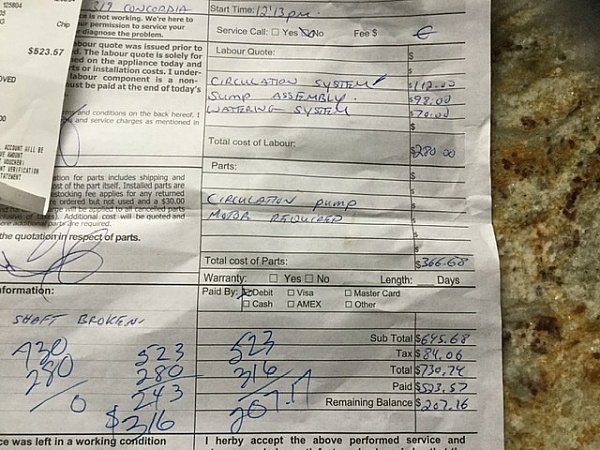 125804
Chip
$523.57
OVED
ACCOUNT WILL BE
VE AMOUNT
VOUCHER)
NT VERIFICATION
STATEMENT
317 CONCORDIA
ce is not working. We're here to
r permission to service your
diagnose the problem.
abour quote was issued prior to
d. The labour quote is solely for
sed on the appliance today and
rts or installation costs. I under-
labour component is a non-
must be paid at the end of today's
and conditions on the back hereof, I
and service charges as mentioned in
Start Time: 12:13pm.
Service Call: Yes No Fee $
Labour Quote: $
$
CIRCULATION SYSTEM $112.00
SUMP ASSEMBLY. $98.00
WATERING SYSTEM $70.00
$
Total cost of Labour: $280.00
Parts: $
ation for parts includes shipping and
st of the part itself. Installed parts are
stocking fee applies for any returned
ordered but not used and a $30.00
will be applied to all cancelled parts
clusive of taxes). Additional cost will be quoted and
ere additional parts are required.
the quotation in respect of parts.
CIRCULATION PUMP $
MOTOR REQUIRED $
$
$
Total cost of Parts: $366.68
Warranty: Yes No Length: Days
nformation:
Paid By: Debit Visa Master Card
Cash AMEX Other
SHAFT BROKEN.
Sub Total $645.68
Tax $84.06
Total $730.74
Paid $523.57
Remaining Balance $207.16
730
280
0
523
280
243
$316
523
316
207.17
ce was left in a working condition
I herby accept the above performed service and